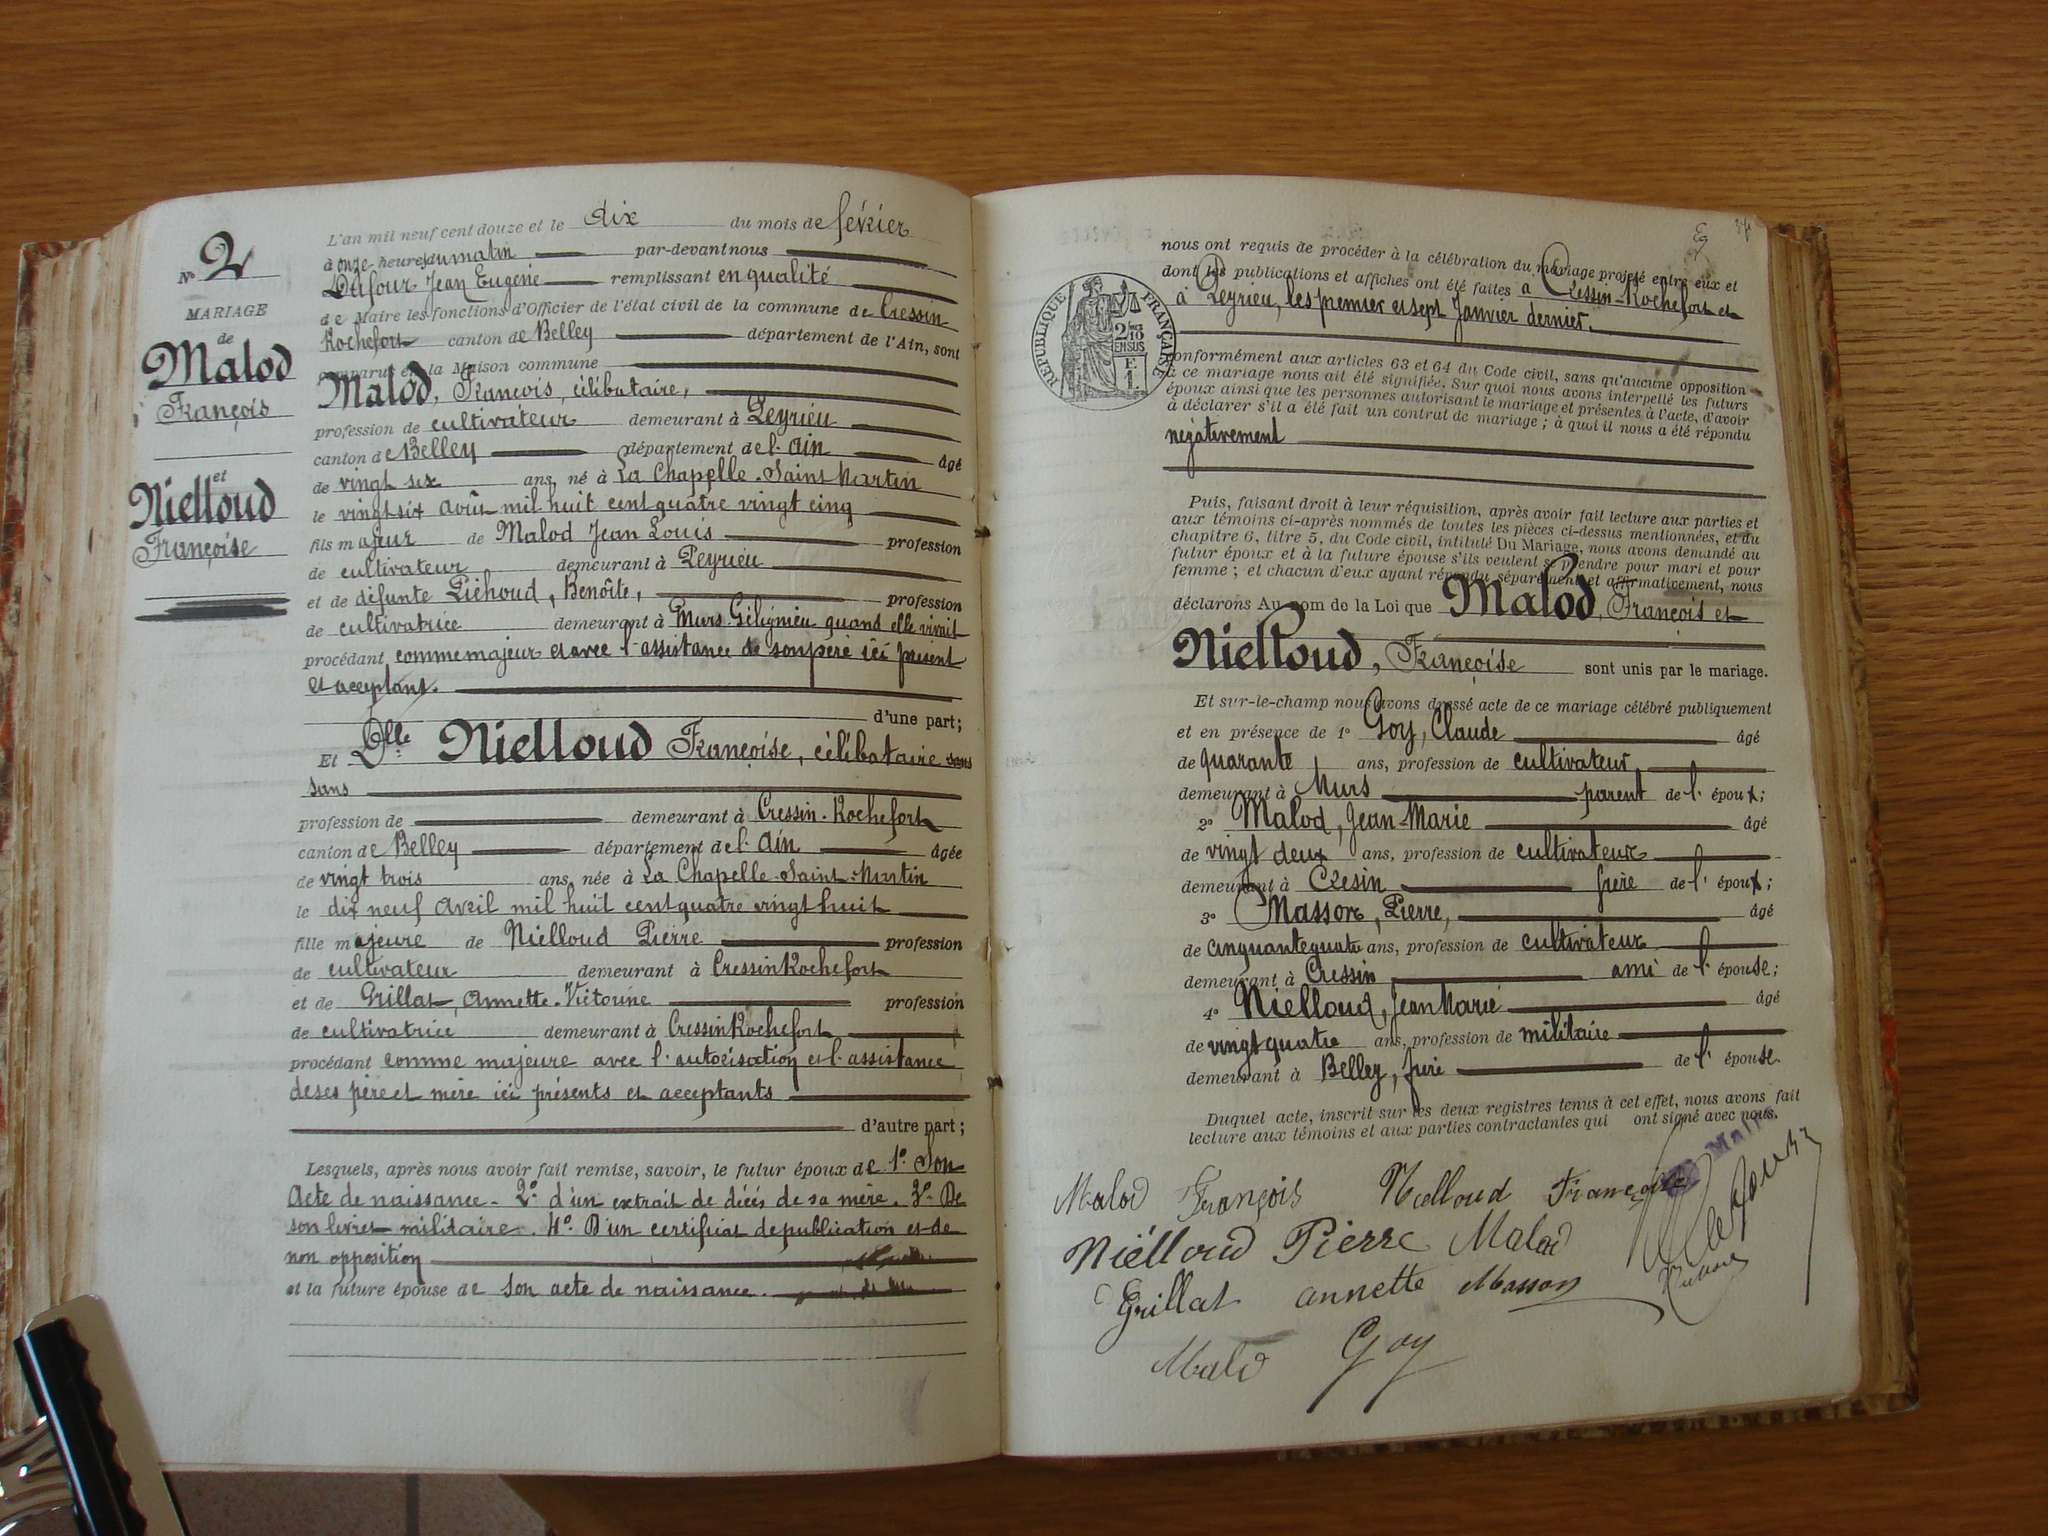 No 2
MARIAGE
de
Malod
François
et
Nielloud
Françoise
L'an mil neuf cent douze et le dix du mois de février
à onze heures du matin par-devant nous
Dufour Jean Eugène remplissant en qualité
de Maire les fonctions d'Officier de l'état civil de la commune de Cressin
Rochefort canton de Belley département de l'Ain, sont
comparus en la Maison commune
Malod, François, célibataire,
profession de cultivateur demeurant à Peyrieu
canton de Belley département de l'Ain âgé
de vingt six ans, né à La Chapelle-Saint Martin
le vingt six Août mil huit cent quatre vingt cinq
fils majeur de Malod Jean Louis profession
de cultivateur demeurant à Peyrieu
et de défunte Pichoud, Benoîte, profession
de cultivatrice demeurant à Murs Gélignieu quand elle vivait
procédant comme majeur et avec l'assistance de son père ici présent
et acceptant.
d'une part;
Et Dlle Nielloud Françoise, célibataire sans
sans
profession de demeurant à Cressin-Rochefort
canton de Belley département de l'Ain âgée
de vingt trois ans, née à La Chapelle-Saint-Martin
le dix neuf avril mil huit cent quatre vingt huit
fille majeure de Nielloud Pierre profession
de cultivateur demeurant à Cressin Rochefort
et de Grillat, Annette-Victorine profession
de cultivatrice demeurant à Cressin Rochefort
procédant comme majeure avec l'autorisation et l'assistance
de ses père et mère ici présents et acceptants
d'autre part;
Lesquels, après nous avoir fait remise, savoir, le futur époux de 1º Son
Acte de naissance - 2º d'un extrait de décès de sa mère. 3º De
son livret militaire. 4º D'un certificat de publication et de
non opposition
et la future épouse de son acte de naissance.
nous ont requis de procéder à la célébration du mariage projeté entre eux et
dont les publications et affiches ont été faites à Cressin-Rochefort et
à Peyrieu, les premier et sept Janvier dernier.
RÉPUBLIQUE FRANÇAISE
2/10
EN SUS
E
1
conformément aux articles 63 et 64 du Code civil, sans qu'aucune opposition
à ce mariage nous ait été signifiée. Sur quoi nous avons interpellé les futurs
époux ainsi que les personnes autorisant le mariage et présentes à l'acte, d'avoir
à déclarer s'il a été fait un contrat de mariage; à quoi il nous a été répondu
négativement
Puis, faisant droit à leur réquisition, après avoir fait lecture aux parties et
aux témoins ci-après nommés de toutes les pièces ci-dessus mentionnées, et du
chapitre 6, titre 5, du Code civil, intitulé Du Mariage, nous avons demandé au
futur époux et à la future épouse s'ils veulent se prendre pour mari et pour
femme; et chacun d'eux ayant répondu séparément et affirmativement, nous
déclarons Au nom de la Loi que Malod, François et
Nielloud, Françoise sont unis par le mariage.
Et sur-le-champ nous avons dressé acte de ce mariage célébré publiquement
et en présence de 1º Goy, Claude âgé
de quarante ans, profession de cultivateur
demeurant à Murs parent de l'époux;
2º Malod, Jean-Marie âgé
de vingt deux ans, profession de cultivateur
demeurant à Cresin frère de l'époux;
3º Masson, Pierre, âgé
de cinquante quatre ans, profession de cultivateur
demeurant à Cressin ami de l'épouse;
4º Nielloud, Jean Marie âgé
de vingt quatre ans, profession de militaire
demeurant à Belley, frère de l'épouse.
Duquel acte, inscrit sur les deux registres tenus à cet effet, nous avons fait
lecture aux témoins et aux parties contractantes qui ont signé avec nous.
Malod François Nielloud Françoise
Niélloud Pierre Malod
Grillat annette Masson
Malod Goy